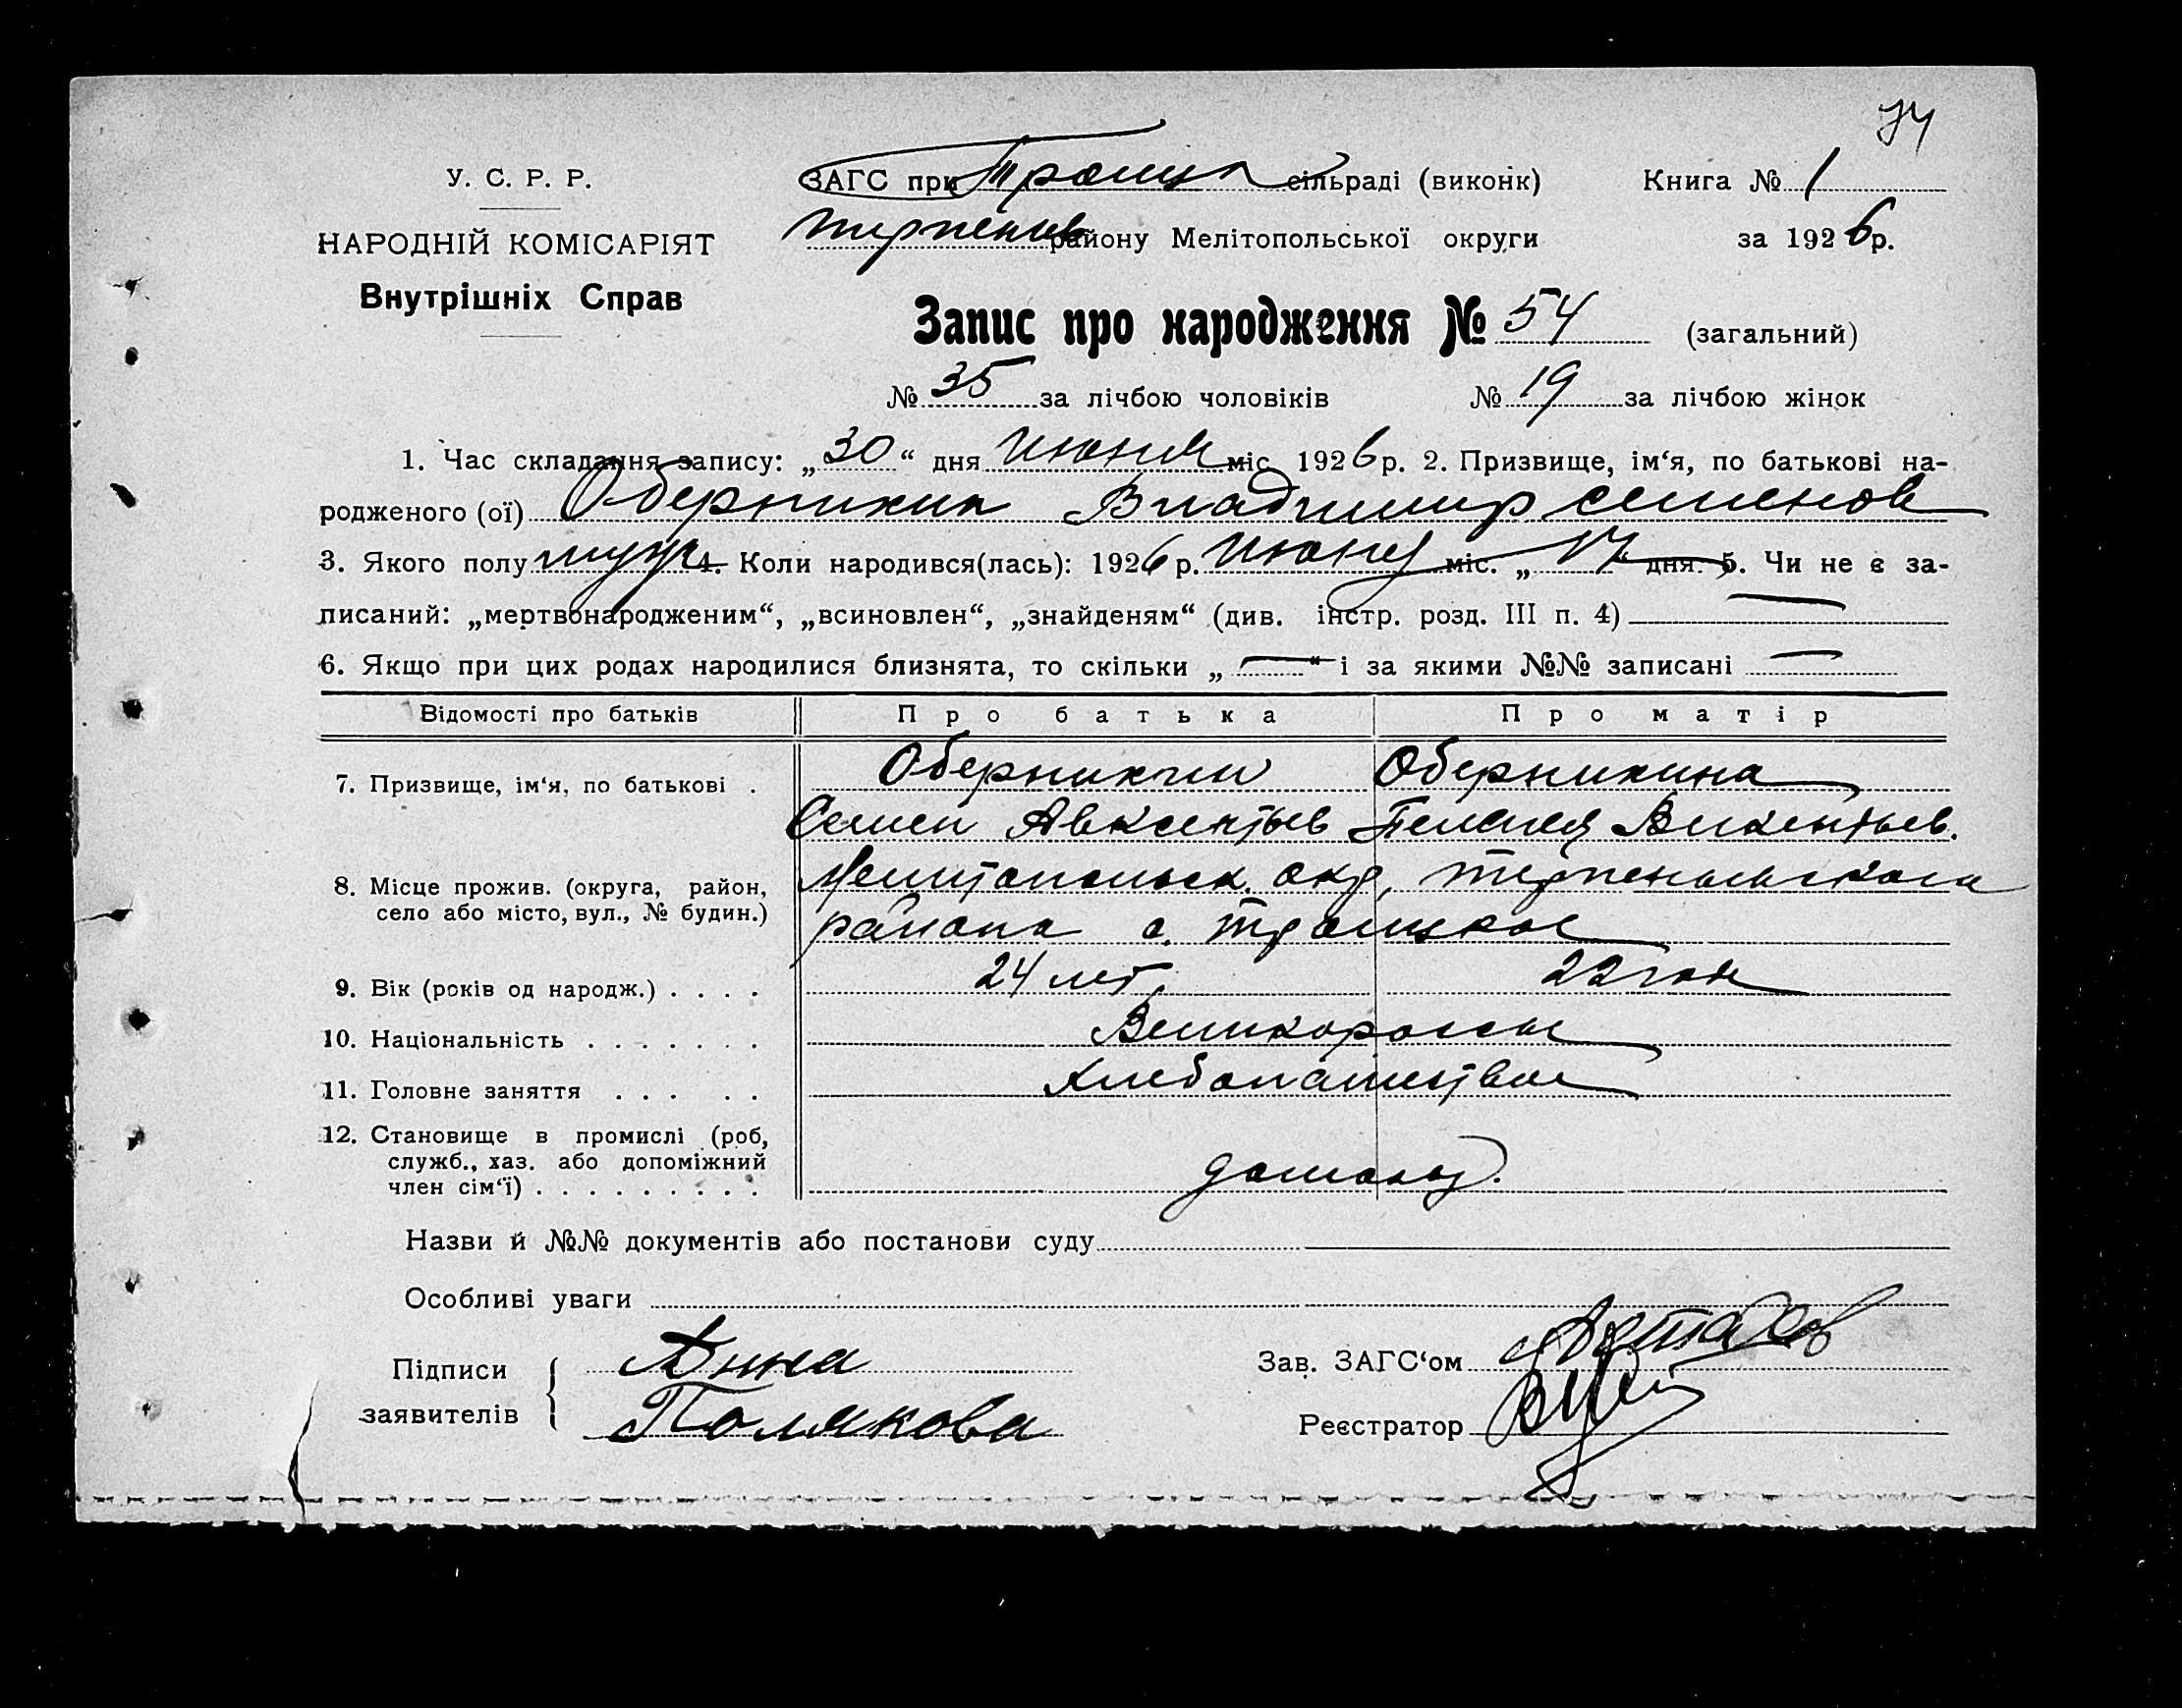 74
У. С. Р. Р.
НАРОДНІЙ КОМІСАРІЯТ
Внутрішніх Справ
ЗАГС при Троицк сільраді (виконк) Книга № 1
Терпенив району Мелітопольської округи за 1926 р.
Запис про народження № 54 (загальний)
№ 35 за лічбою чоловіків № 19 за лічбою жінок
1. Час складання запису: „30“ дня Июня міс. 1926 р. 2. Призвище, ім‘я, по батькові на-
родженого (ої) Оберникин Владимир Семенов
3. Якого полу муж 4. Коли народився(лась): 1926 р. Июня міс. „17“ дня. 5. Чи не є за-
писаний: „мертвонародженим“, „всиновлен“, „знайденям“ (див. інстр. розд. III п. 4) —
6. Якщо при цих родах народилися близнята, то скільки „—“ і за якими №№ записані —
Відомості про батьків Про батька Про матір
7. Призвище, ім‘я, по батькові . Оберникин Оберникина
Семен Авксентьев Пелагея Викентьев.
8. Місце прожив. (округа, район, Мелитопольск. окр.
село або місто, вул., № будин.) района с. Троицкое
9. Вік (років од народж.) . . . . 24 лет. 22 года
10. Національність . . . . . . . Великороссы
11. Головне заняття . . . . . Хлебопашество
12. Становище в промислі (роб,
служб., хаз. або допоміжний
член сім‘ї) . . . . . . . . .
Назви й №№ документів або постанови суду
Особливі уваги
Підписи Анна Зав. ЗАГС‘ом
заявителів Полякова Реєстратор